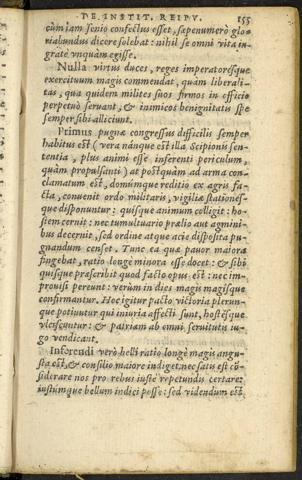 DE INSTIT. REIPV. 155
cùm iam senio confectus esset, sæpenumerò glo-
riabundus dicere solebat: nihil se omni vita in-
gratè vnquàm egisse.
Nulla virtus duces, reges imperatorésque
exercituum magis commendat, quàm liberali-
tas, qua quidem milites suos firmos in officio
perpetuò seruant, & inimicos benignitatis spe
semper sibi alliciunt.
Primus pugnæ congressus difficilis semper
habitus est (vera nánque est illa Scipionis sen-
tentia, plus animi esse inferenti periculum,
quàm propulsanti) at postquàm ad arma con-
clamatum est, domúmque reditio ex agris fa-
cta, conuenit ordo militaris, vigiliæ stationés-
que disponuntur: quisque animum colligit: ho-
stem cernit: nec tumultuario prælio aut agmini-
bus decernit, sed ordine atque acie disposita pu-
gnandum censet. Tunc ea quæ pauor maiora
fingebat, ratio longè minora esse docet: & sibi
quisque præscribit quod facto opus est: nec im-
prouisi pereunt: verùm in dies magis magisque
confirmantur. Hoc igitur pacto victoria plerun-
que potiuntur qui iniuria affecti sunt, hostésque
vlciscuntur: & patriam ab omni seruitutis iu-
go vendicant.
Inferendi verò belli ratio longè magis angu-
sta est, & consilio maiore indiget, nec satis est cō-
siderare nos pro rebus iustè repetundis certare:
iustúmque bellum indici posse: sed videndum est